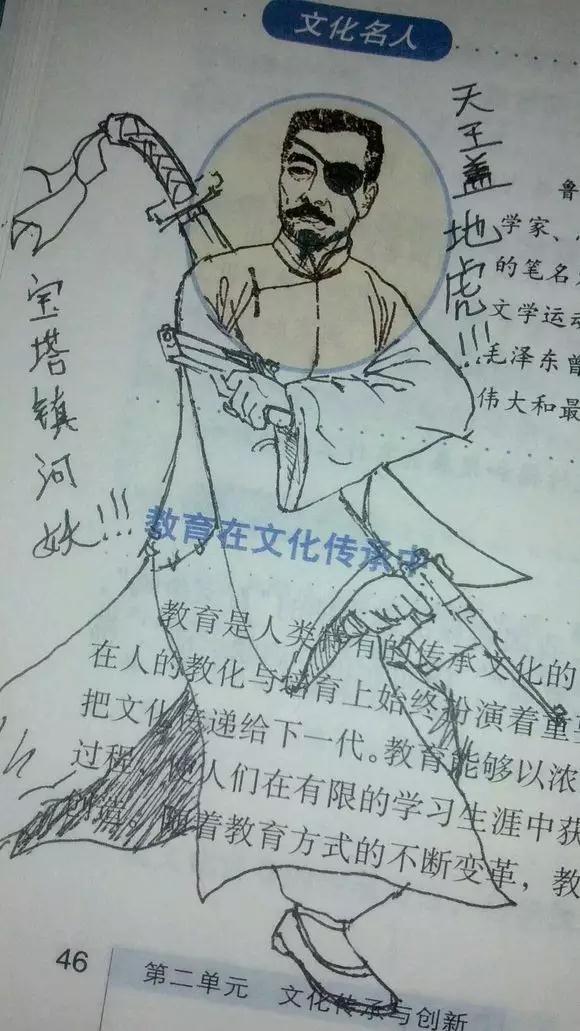 文化名人
天王盖地虎!!!
宝塔镇河妖!!!
鲁
学家、
的笔名
文学运动
毛泽东曾
伟大和最
教育在文化传承中
教育是人类特有的传承文化的
在人的教化与培育上始终扮演着重要
把文化传递给下一代。教育能够以浓
过程，使人们在有限的学习生涯中获
创造。随着教育方式的不断变革，教
46
第二单元 文化传承与创新